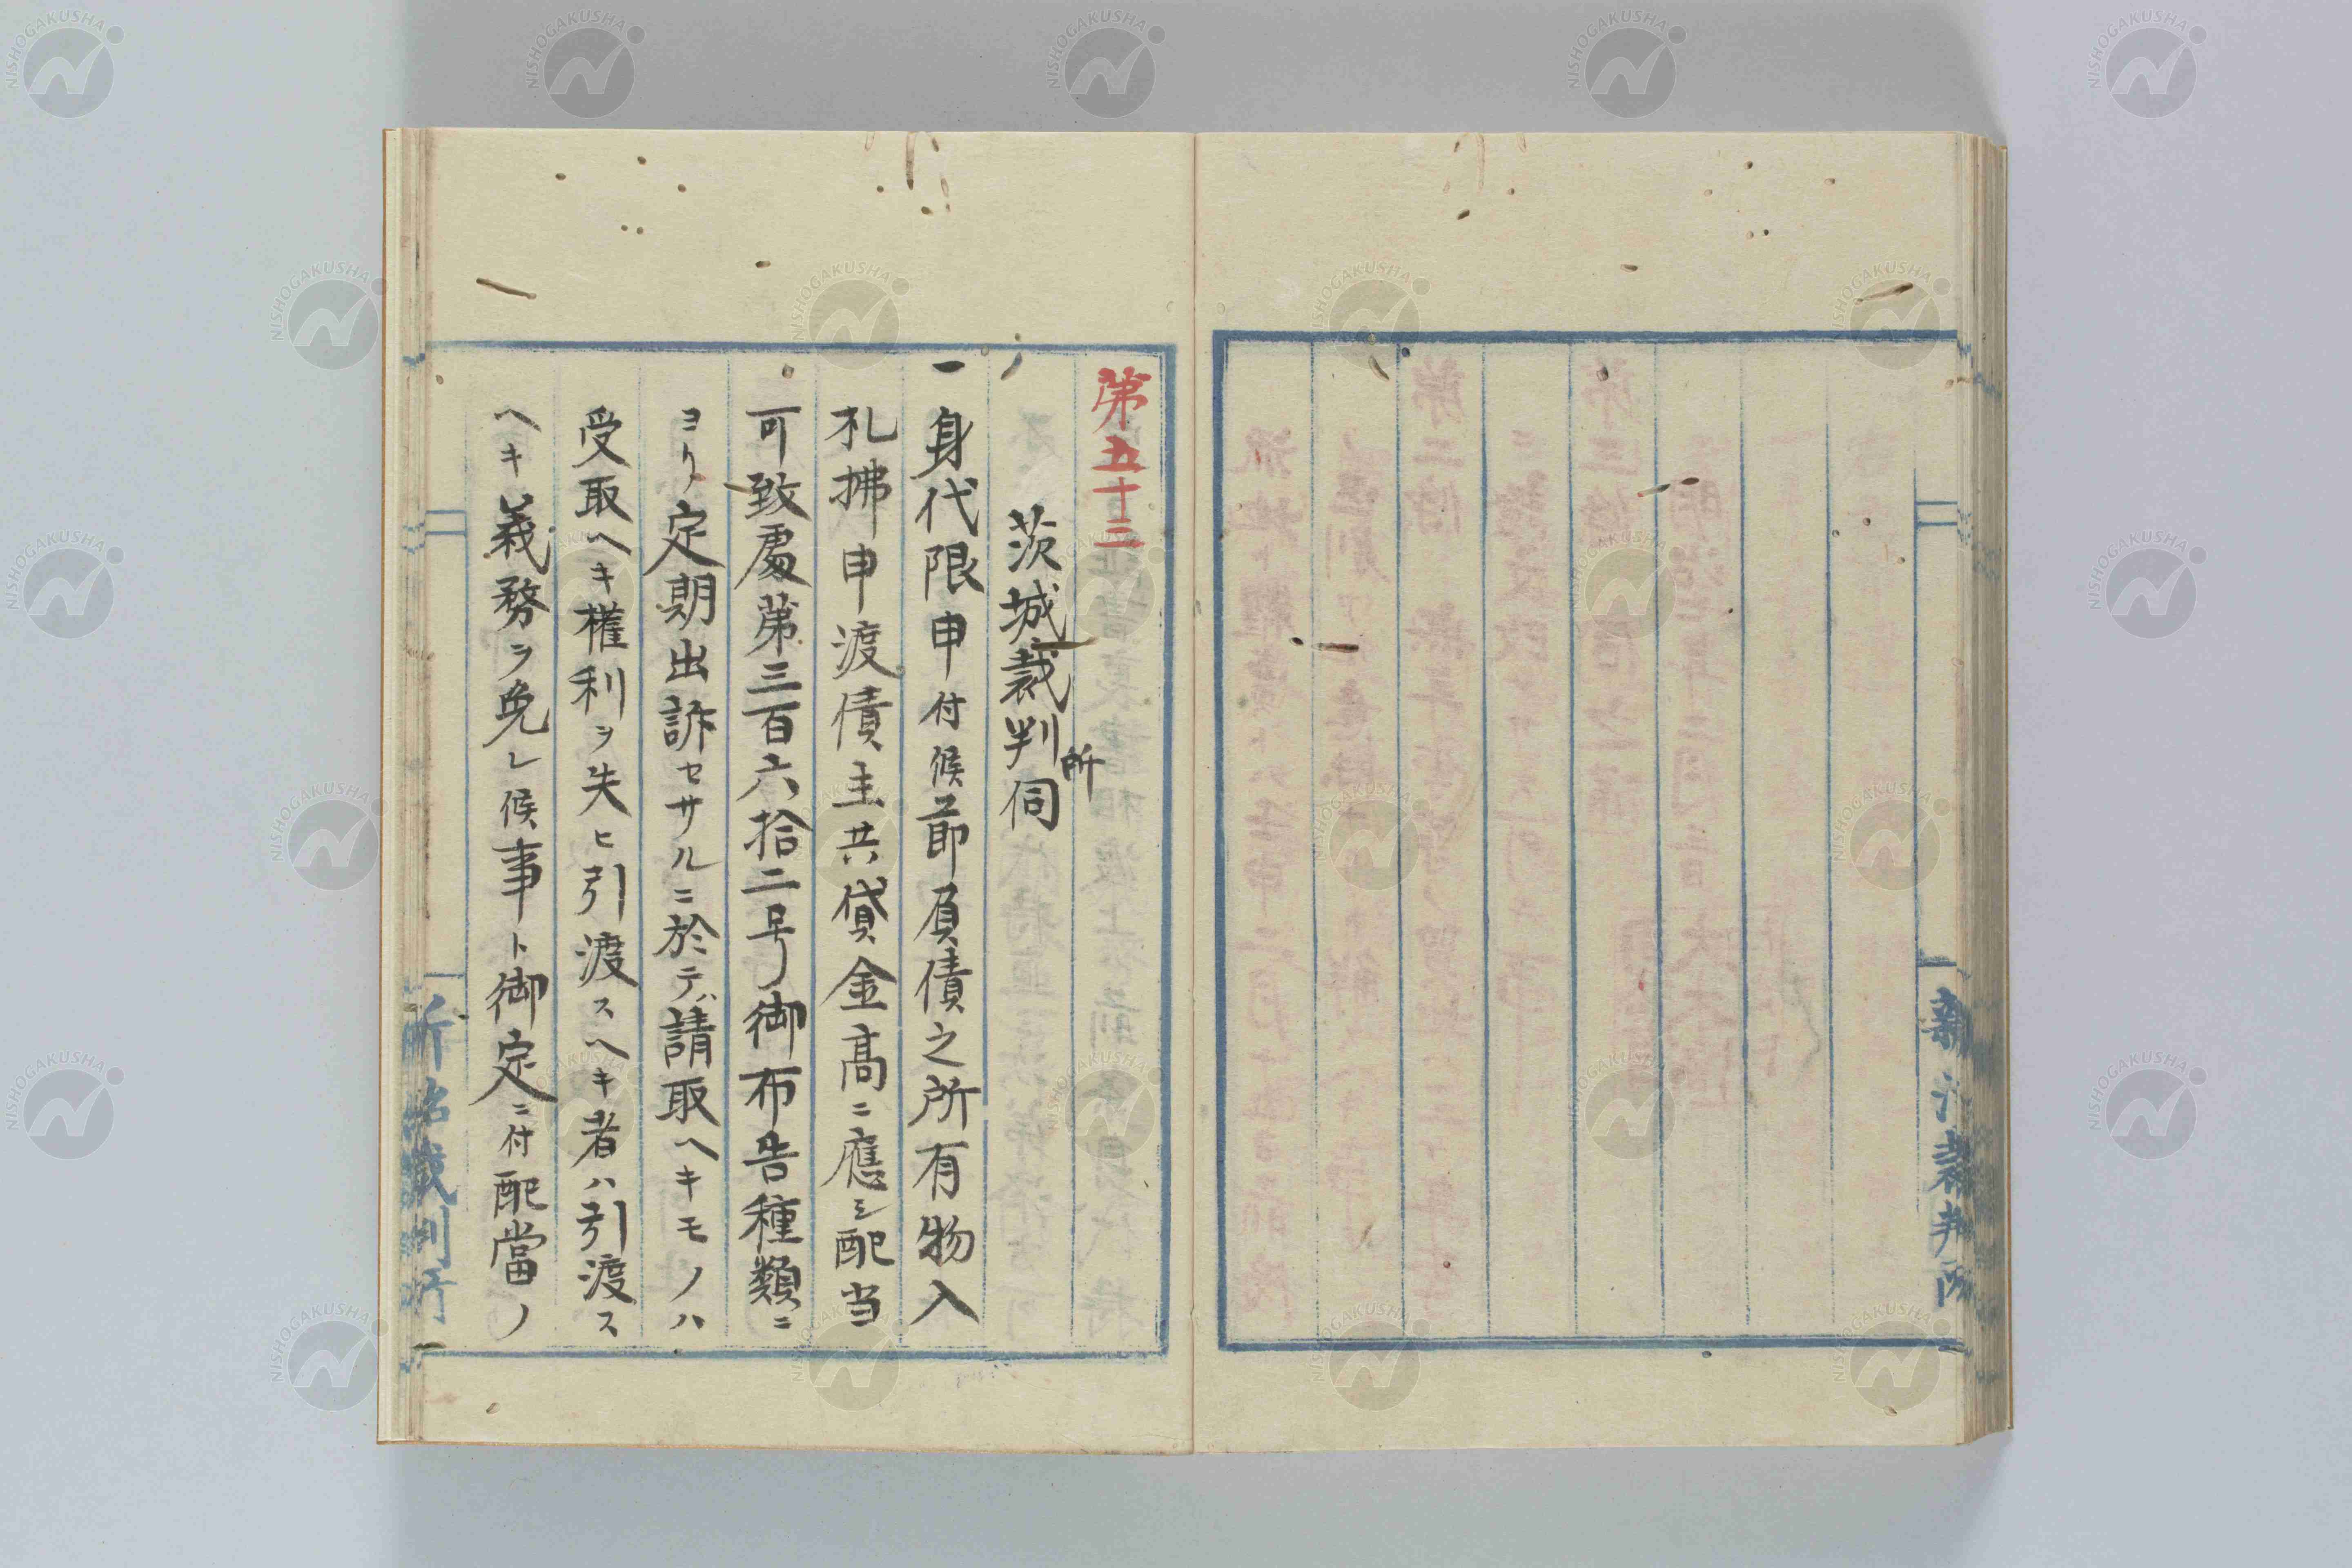 第五十三
茨城裁判所伺
一身代限申付候節負債之所有物入
札拂申渡債主共貸金高ニ應シ配当
可致處第三百六拾二号御布告種類ニ
ヨリ定期出訴セサルニ於テハ請取ヘキモノハ
受取ヘキ權利ヲ失ヒ引渡スヘキ者ハ引渡ス
ヘキ義務ヲ免レ候事ト御定ニ付配當ノ
新治裁判所
新治裁判所
NISHOGAKUSHA